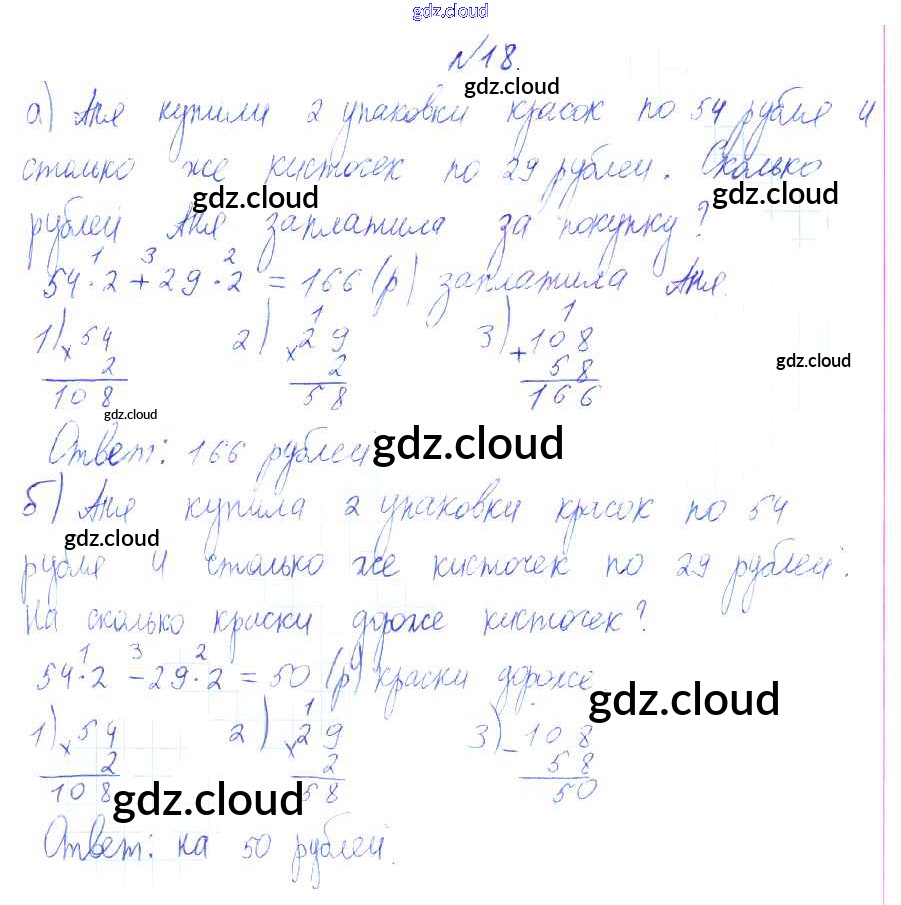 gdz.cloud
№18.
gdz.cloud
а) Аня купили 2 упаковки красок по 54 рубля и
столько же кисточек по 29 рублей. Сколько
gdz.cloud gdz.cloud
рублей Аня заплатила за покупку?
1 3 2
54·2+29·2=166 (р) заплатила Аня.
1) ×54 2) ×29 3) +108
2 2 58
108 58 166
1 1
gdz.cloud
gdz.cloud
Ответ: 166 рублей
gdz.cloud
б) Аня купила 2 упаковки красок по 54
gdz.cloud
рубля и столько же кисточек по 29 рублей.
На сколько краски дороже кисточек?
1 3 2
54·2-29·2=50 (р) краски дороже
gdz.cloud
1) ×54 2) ×29 3) -108
2 2 58
108 58 50
1
gdz.cloud
Ответ: на 50 рублей.